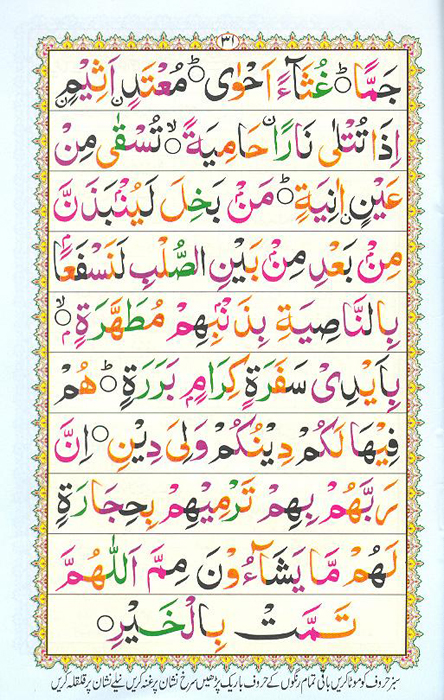 ٣١
جَمًّا ؕ غُثَآءً اَحْوٰى ؕ مُعْتَدٍ اَثِيْمٍ ۙ
اِذَا تُتْلٰى نَارًا حَامِيَةً ۙ تُسْقٰى مِنْ
عَيْنٍ اٰنِيَةٍ ؕ مَنْۢ بَخِلَ لَيُنْۢبَذَنَّ
مِنْۢ بَعْدِ مِنْۢ بَيْنِ الصُّلْبِ لَنَسْفَعًۢا
بِالنَّاصِيَةِ بِذَنْۢبِهِمْ مُطَهَّرَةٍ ۙ
بِاَيْدِىْ سَفَرَةٍ كِرَامٍۢ بَرَرَةٍ ؕ هُمْ
فِيْهَا لَكُمْ دِيْنُكُمْ وَلِىَ دِيْنِ ۝ اِنَّ
رَبَّهُمْ بِهِمْ تَرْمِيْهِمْ بِحِجَارَةٍ
لَهُمْ مَّا يَشَآءُوْنَ مِمَّ اَللّٰهُمَّ
تَمَّتْ بِالْخَيْرِ ۝
سبز حروف کو موٹا کریں باقی تمام رنگوں کے حروف باریک پڑھیں سرخ نشان پر غنہ کریں نیلے نشان پر قلقلہ کریں